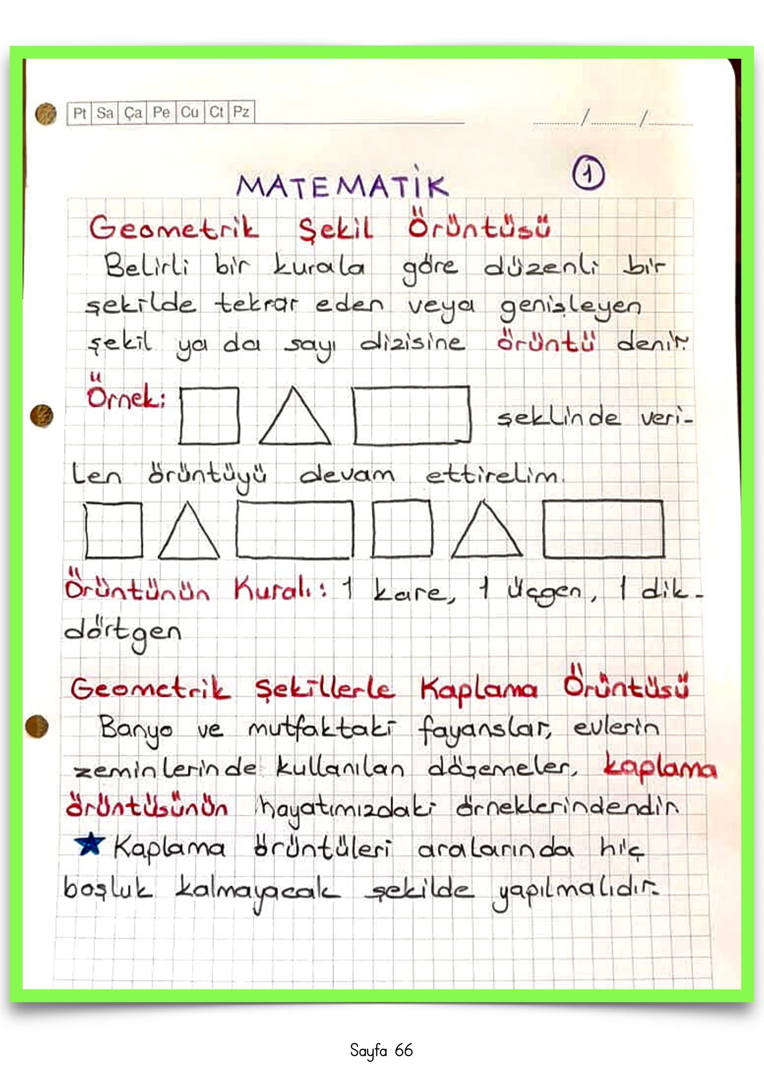 Pt Sa Ça Pe Cu Ct Pz
/ /
MATEMATİK
1
Geometrik Şekil Örüntüsü
Belirli bir kurala göre düzenli bir
şekilde tekrar eden veya genişleyen
şekil ya da sayı dizisine örüntü denir.
Örnek:
şeklinde veri-
len örüntüyü devam ettirelim.
Örüntünün Kuralı: 1 kare, 1 üçgen, 1 dik-
dörtgen
Geometrik Şekillerle Kaplama Örüntüsü
Banyo ve mutfaktaki fayanslar, evlerin
zeminlerinde kullanılan döşemeler, kaplama
örüntüsünün hayatımızdaki örneklerindendir.
★ Kaplama örüntüleri aralarında hiç
boşluk kalmayacak şekilde yapılmalıdır.
Sayfa 66